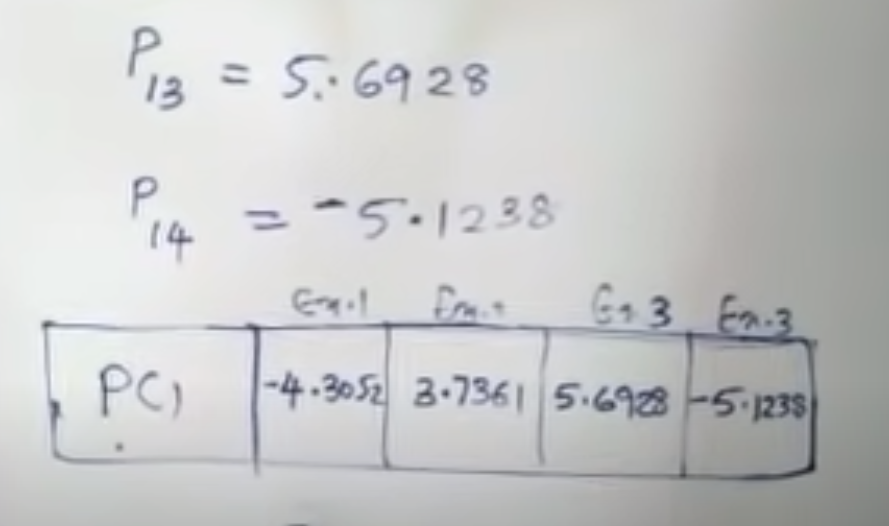 P13 = 5.6928
P14 = -5.1238
Ex.1 Ex.2 Ex.3 Ex.3
PC1 -4.3052 3.7361 5.6928 -5.1238